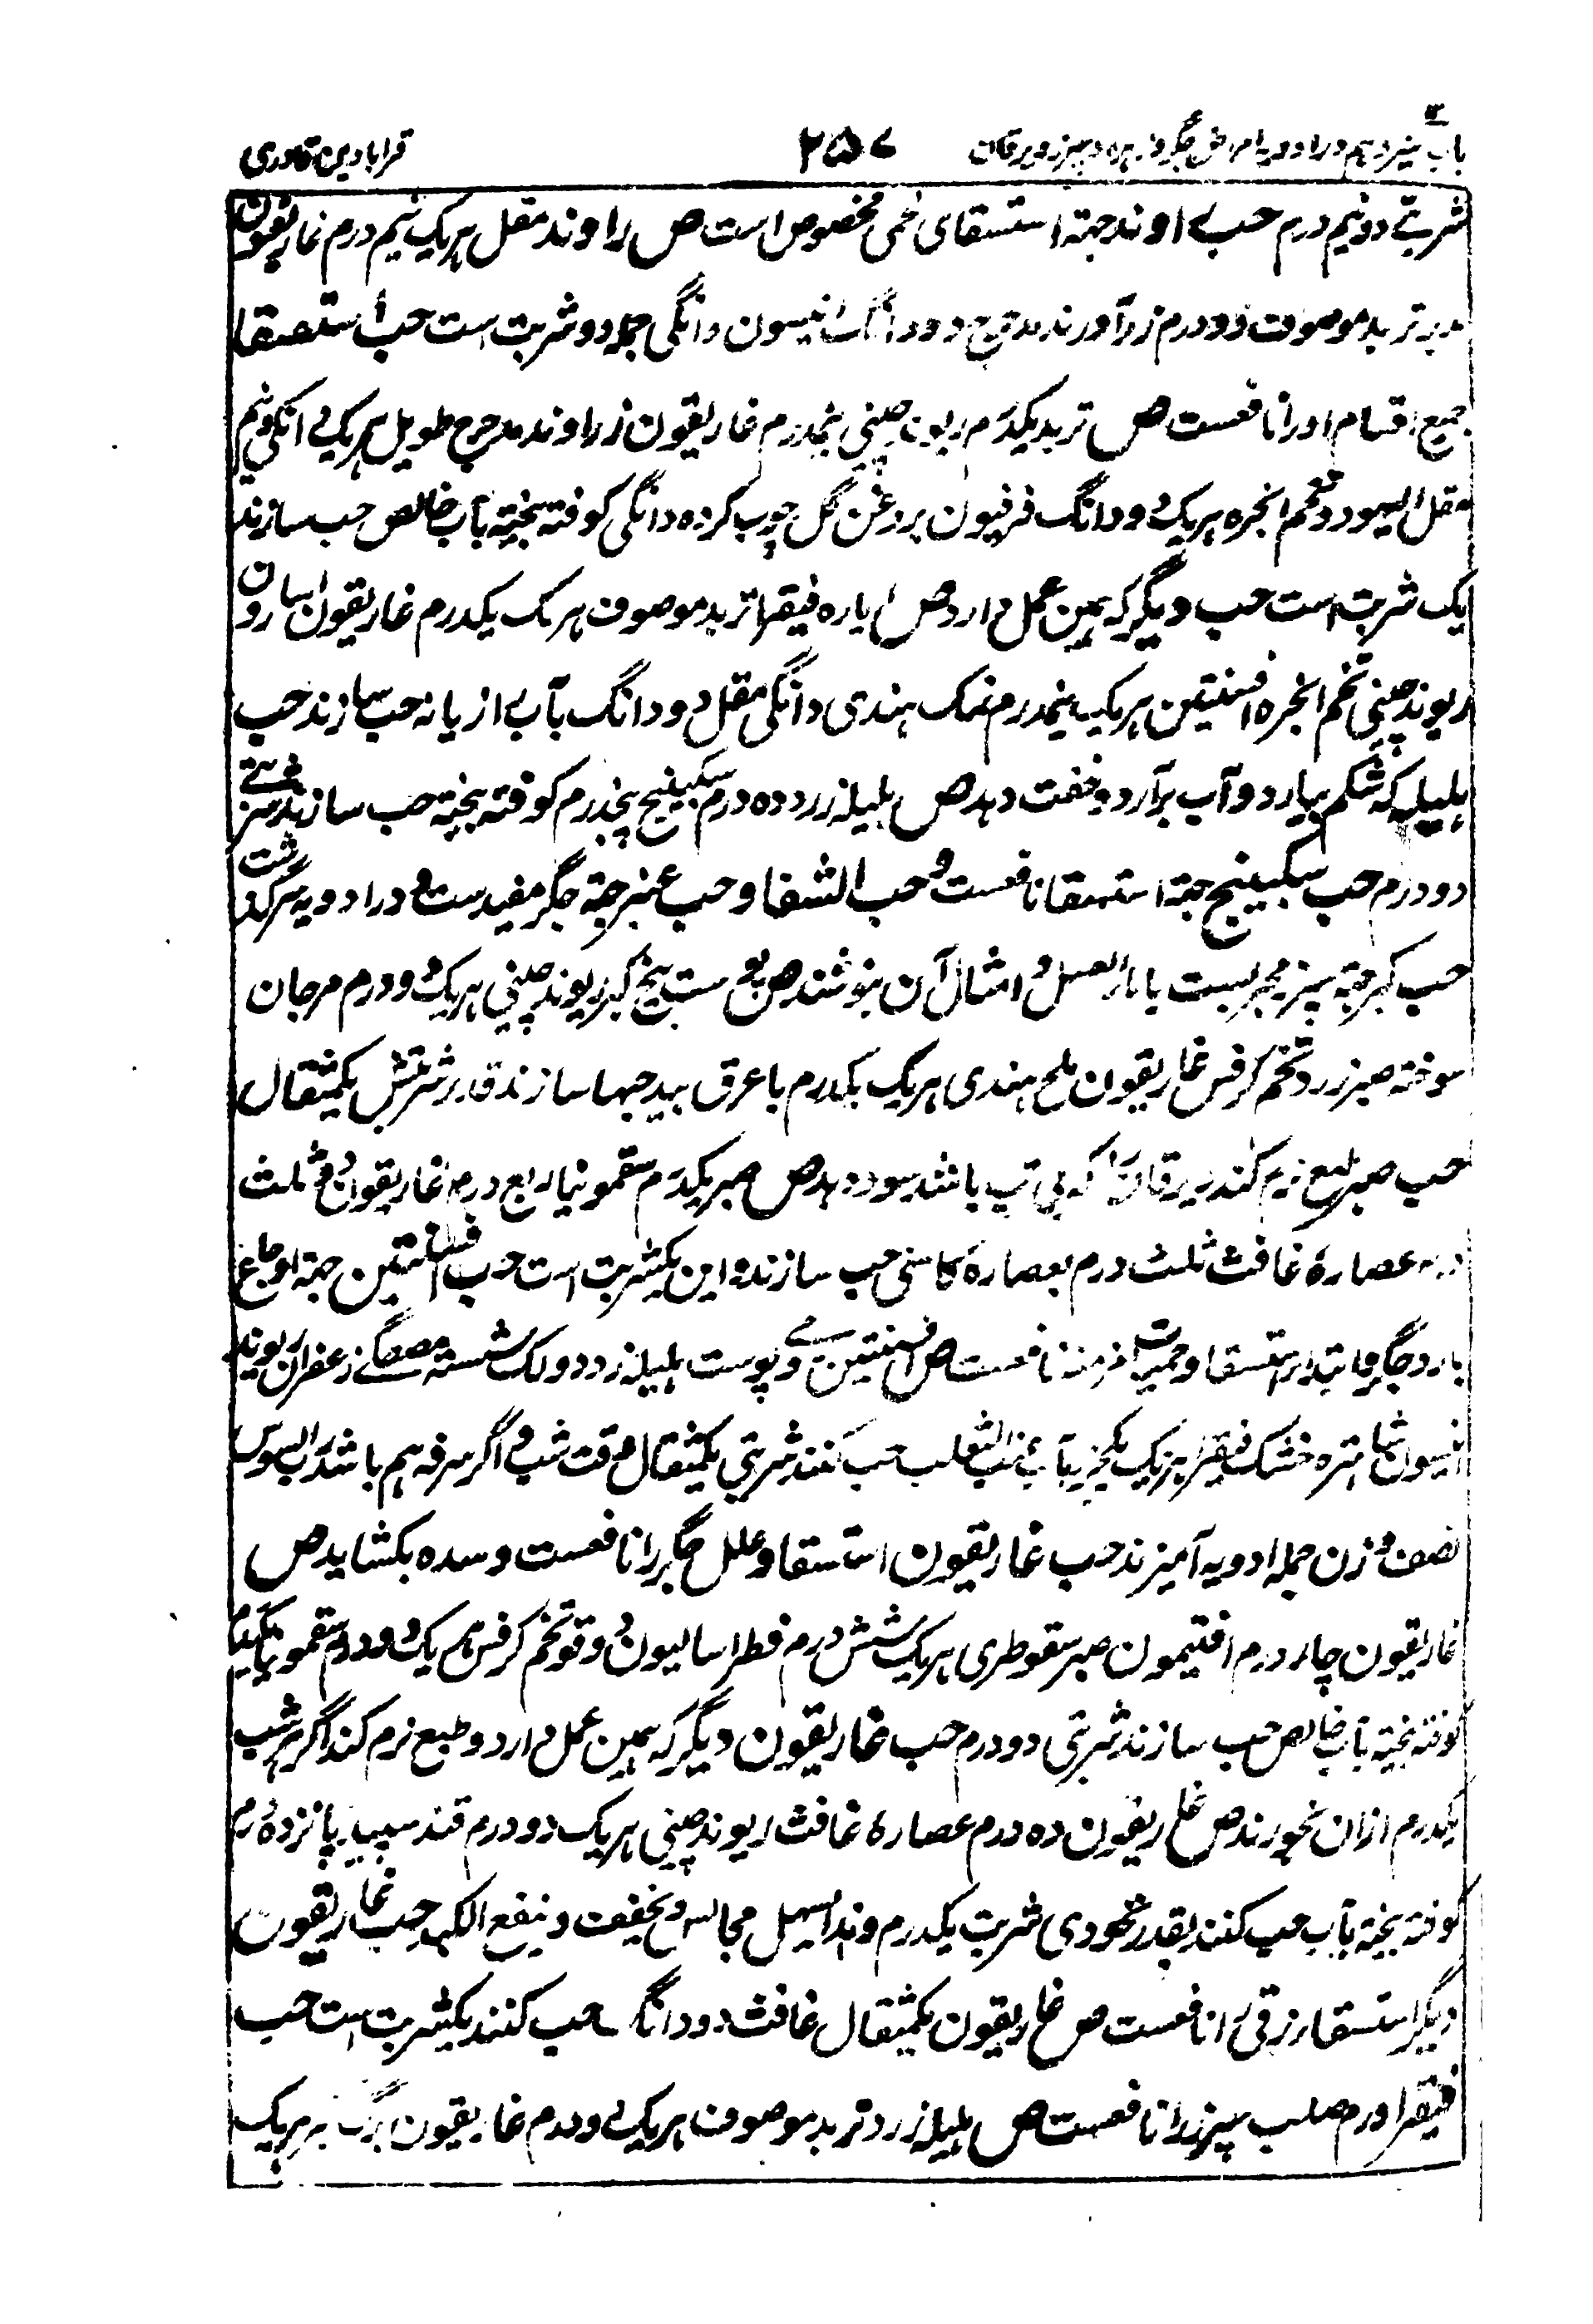 باب سیزدهم در ادویه امراض جگر و زهره و سپرز و یرقان ۲۵۷ قرابادین قادری
شربتے دو نیم درم حب راوند جهته استسقای لحمی مخصوص است ص راوند مقل هریک نیم درم غاریقون
تربد موصوف دو درم زراوند مدحرج دو دانگ انیسون دانگی جمله دو شربت ست حب استسقا
جمیع اقسام اورا نافعست ص تربد یکدرم ریوند چینی نیمدرم غاریقون زراوند مدحرج طویل هریک دانگی و نیم
مقل الیهود و تخم انجره هریک دو دانگ فرفیون بروغن گل چرب کرده دانگی کوفته بیخته بآب خالص حب سازند
یک شربت است حب دیگر که همین عمل دارد ص ایاره فیقرا تربد موصوف هریک یکدرم غاریقون اسارون
ریوند چینی تخم انجره افسنتین هریک نیمدرم نمک هندی دانگی مقل دو دانگ بآب رازیانه حب سازند حب
هلیله که شکم بیارد و آب برآرد و خفت دهد ص هلیله زرد ده درم سکبینج پنجدرم کوفته بیخته حب سازند شربتے
دو درم حب سکبینج جهته استسقا نافعست و حب الشفا و حب عنبر جهته جگر مفیدست و در ادویه سر گذشت
حب کبر جهته سپرز مجربست با ماء العسل و امثال آن بنوشند ص پوست بیخ کبر ریوند چینی هریک دو درم مرجان
سوخته صبر زرد تخم کرفس غاریقون ملح هندی هریک یکدرم با عرق بید حبها سازند قدر شربتش یکمثقال
حب صبر طبع نرم کند و یرقان را که بی تپ باشد سود دهد ص صبر یکدرم سقمونیا ربع درم غاریقون ثلث
درم عصارۀ غافث ثلث درم بعصارۀ کاسنی حب سازند و این یکشربت است حب افسنتین جهته اوجاع
بارد جگر و ابتداء استسقا و حمیات مزمنه نافعست ص افسنتین رومے و پوست هلیله زرد و لک شسته مصطگے زعفران ریوند
انیسون شاهتره خشک فیقرا هریک یکجزء بآب عنب الثعلب حب کنند شربتی یکمثقال وقت شب و اگر سرفه هم باشد رب السوس
نصف وزن جمله ادویه آمیزند حب غاریقون استسقا و علل جگر را نافعست و سده بکشاید ص
غاریقون چار درم افتیمون صبر سقوطری هریک شش درم فطراسالیون دوقو تخم کرفس هریک دو درم سقمونیا یکدرم
کوفته بیخته بآب خالص حب سازند شربتی دو درم حب غاریقون دیگر که همین عمل دارد و طبع نرم کند اگر هر شب
یکدرم ازان بخورند ص غاریقون ده درم عصارۀ غافث ریوند چینی هریک دو درم قند سپید پانزده درم
کوفته بیخته بآب حب کنند بقدر نخودی شربت یکدرم و هذا یسهل مجالس و بخفت و ینفع الکبد حب غاریقون
دیگر استسقاء زقی را نافعست ص غاریقون یکمثقال غافث دو دانگ حب کنند یکشربت است حب
فیقرا ورم صلب سپرز را نافعست ص هلیله زرد تربد موصوف هریک دو درم غاریقون هریک